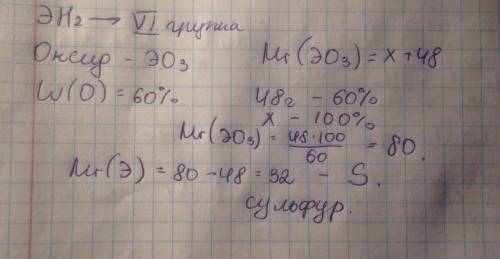 ЭH₂ → VI группа
Оксид - ЭO₃ Mr(ЭO₃) = x + 48
W(O) = 60% 48г - 60%
x - 100%
Mr(ЭO₃) = 48·100/60 = 80.
Mr(Э) = 80 - 48 = 32 - S.
сульфур.